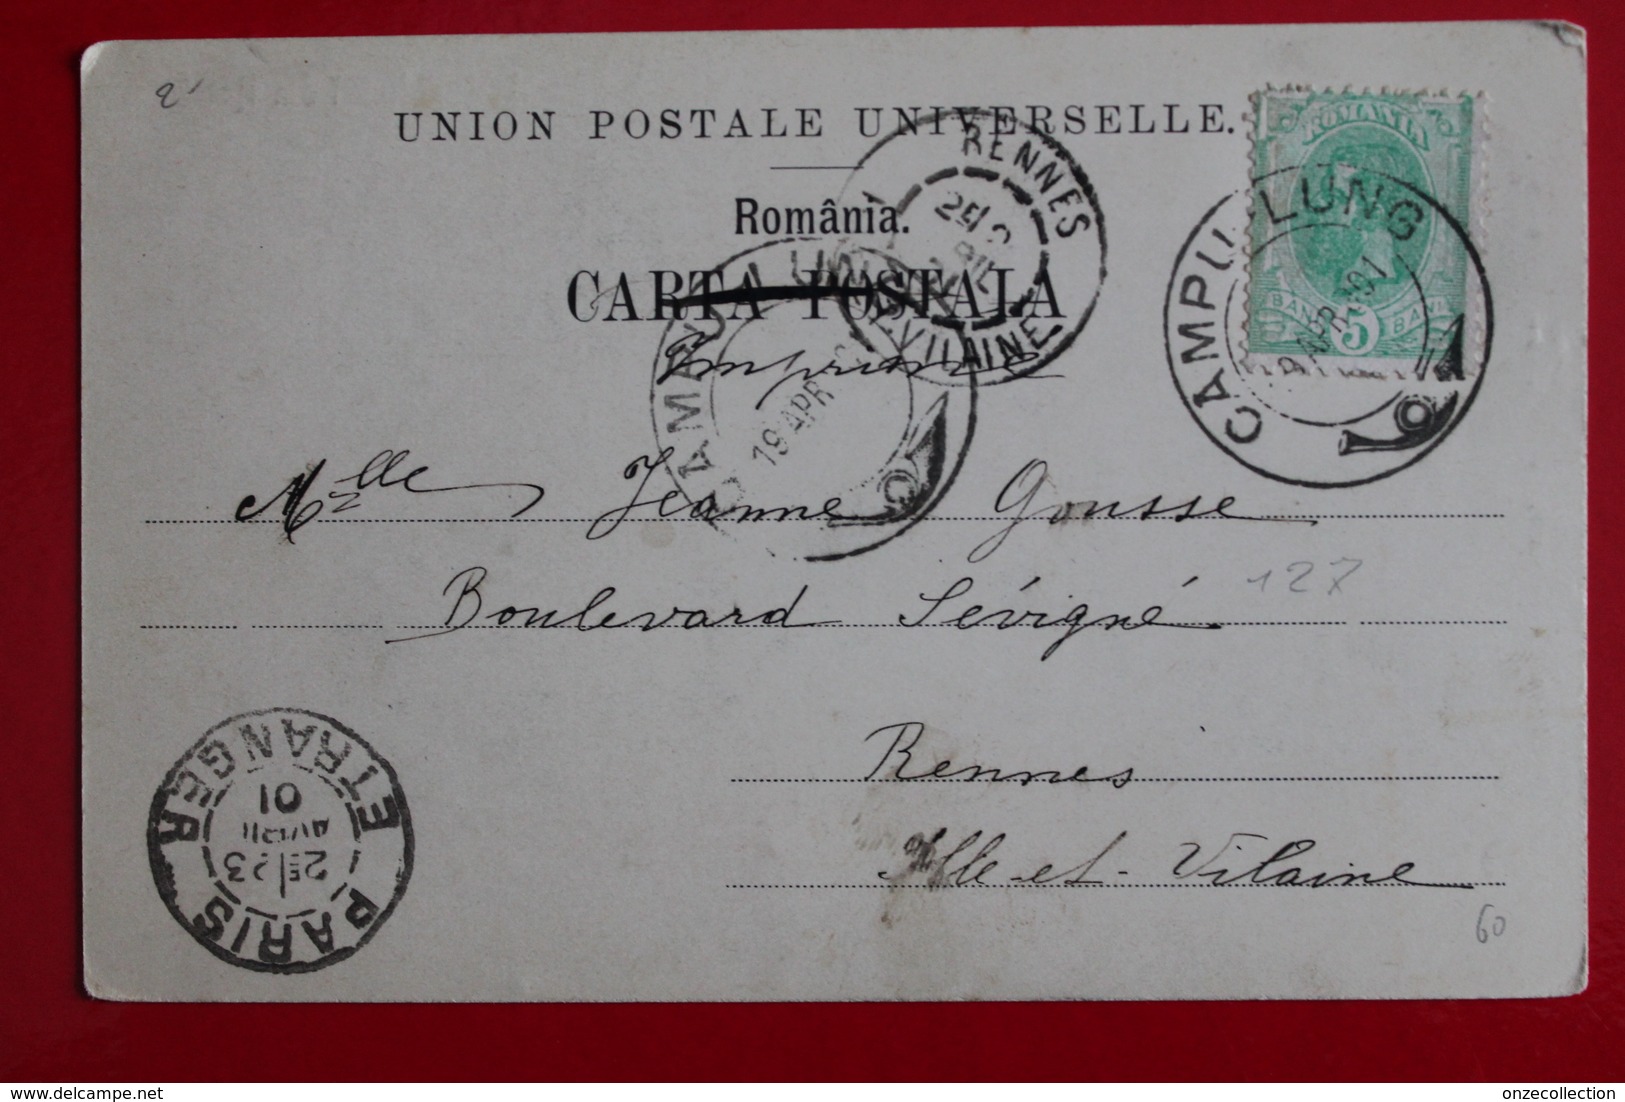 2
UNION POSTALE UNIVERSELLE.
România.
CARTA POSTALA
Imprimé
ROMANIA
BANI 5 BANI
CAMPU-LUNG
19 APR 901
RENNES
ILLE-ET-VILAINE
CAMPU LUNG
19 APR
Mlle Jeanne Gousse
Boulevard Sévigné 127
Rennes
Ille-et-Vilaine
60
PARIS ETRANGER
2E 23
AVRIL
01
delcampe.net
onzecollection